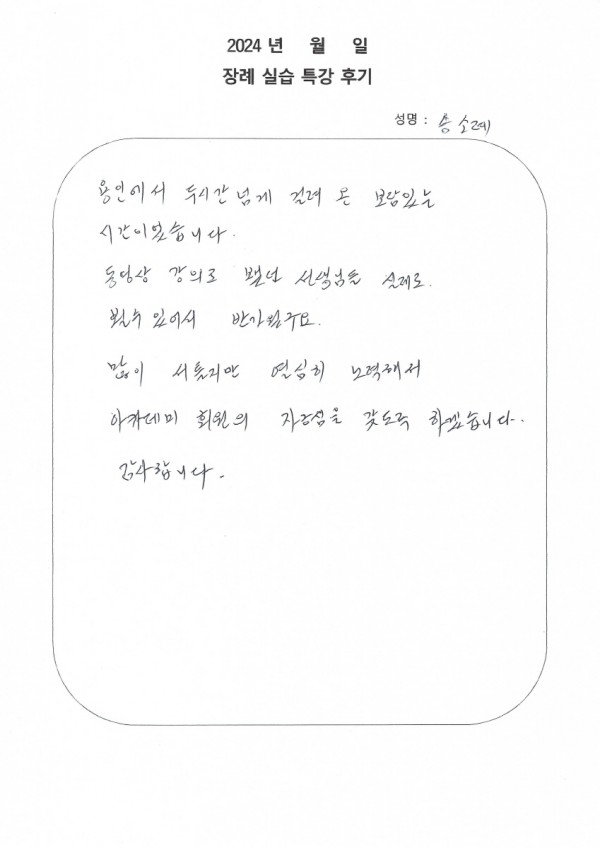 2024 년 월 일
장례 실습 특강 후기
성명 : 송소례
용인에서 두시간 넘게 걸려 온 보람있는
시간이었습니다.
동영상 강의로 뵀던 선생님들 실제로.
뵐수 있어서 반가웠구요.
많이 서툴지만 열심히 노력해서
아카데미 회원의 자긍심을 갖도록 하겠습니다.
감사합니다.